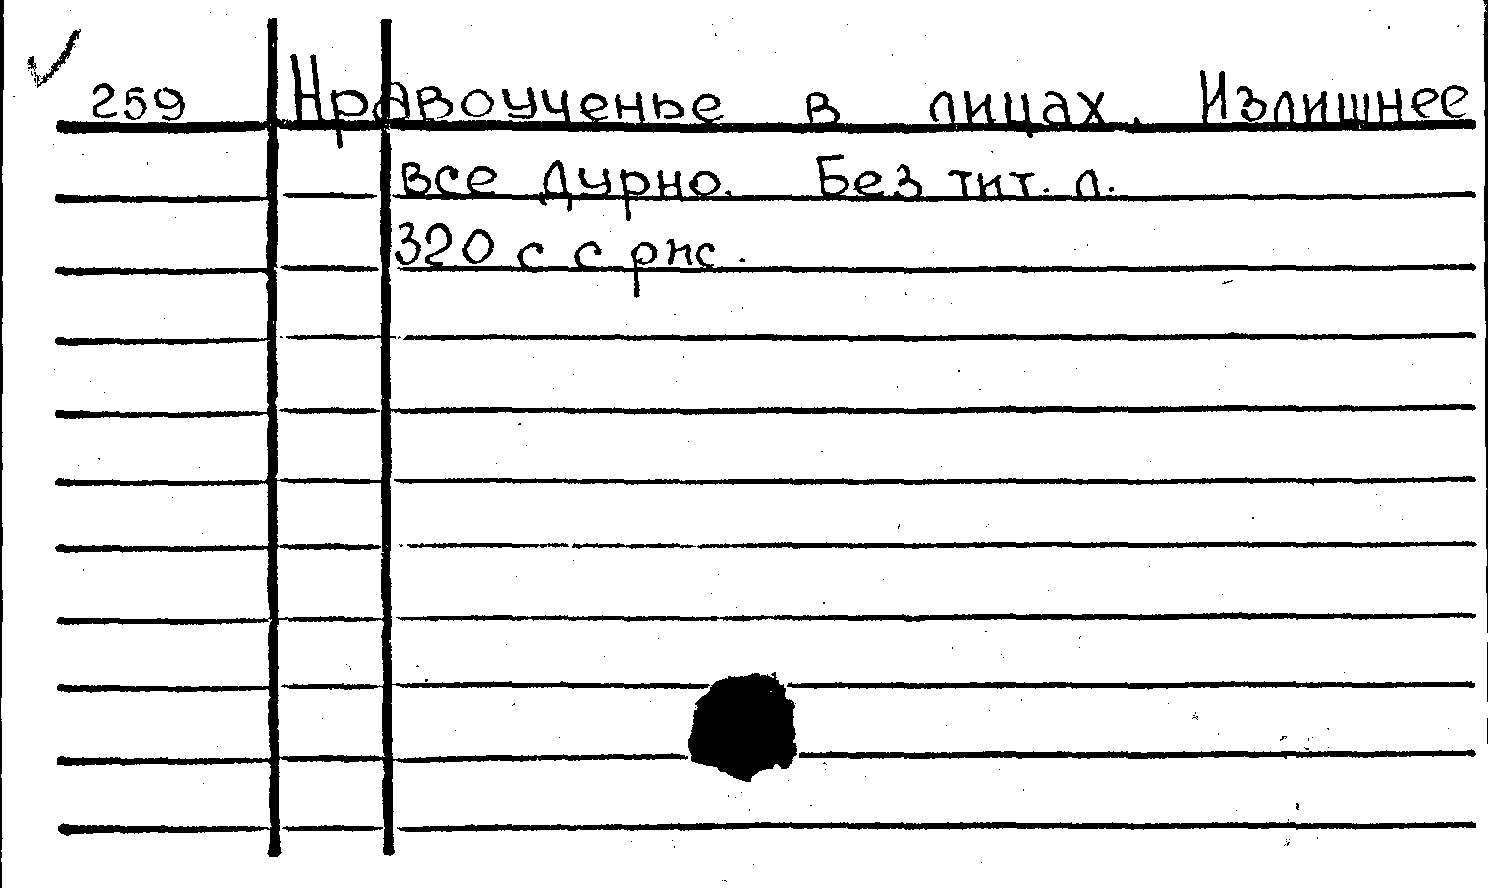 259 Нравоученье в лицах. Излишнее
все дурно. Без тит. л.
320 с с рис.